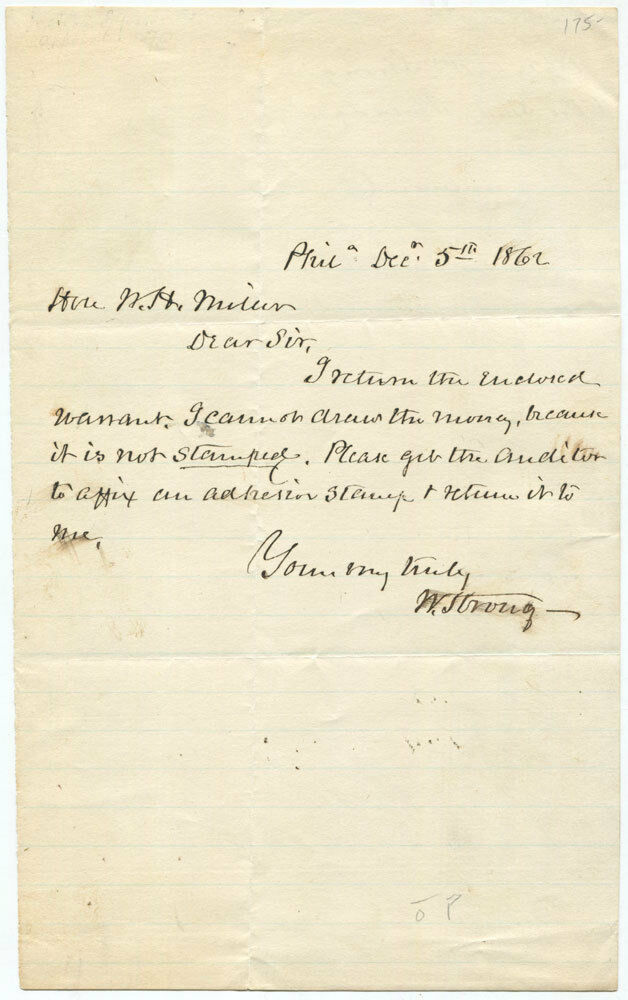 175-
Philª Decr. 5th 1862
Hon W. H. Miller
Dear Sir,
I return the enclosed
warrant. I cannot draw the money, because
it is not stamped. Please get the Auditor
to affix an adhesive stamp & return it to
me.
Yours very truly
W. Strong